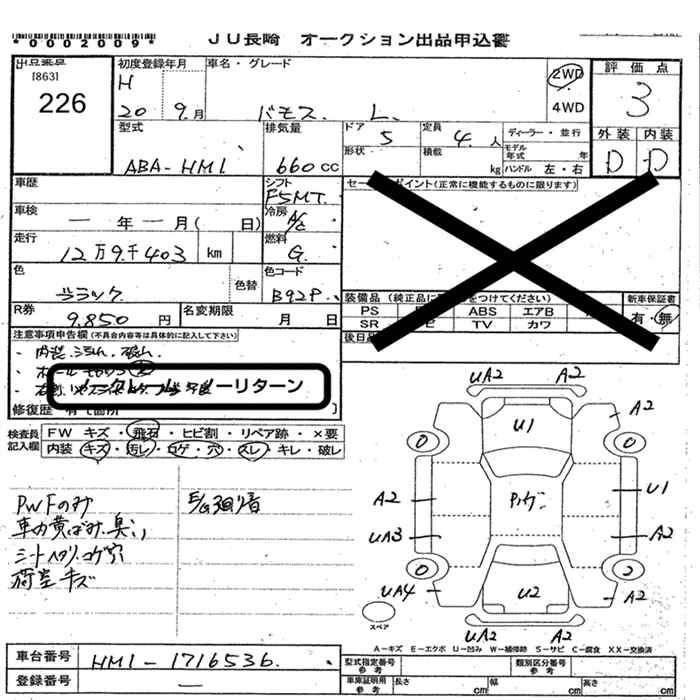 *0002009*
JU長崎 オークション出品申込書
出品票点
[863]
226
初度登録年月
H
20 9.月
車名・グレード
バモス L.
2WD
4WD
評価点
3
外装 内装
D D
型式
ABA-HM1.
排気量
660cc
ドア
5
形状
定員
4.人
積載
kg
ディーラー・並行
モデル年式 年
ハンドル 左・右
車歴
シフト
F5MT.
セールスポイント(正常に機能するものに限ります)
車検
一 年 一 月( 日)
冷房
A/C
走行
12万9千403 km
燃料
G.
色
ブラック
色替
色コード
B92P.
装備品 (純正品に をつけてください)
新車保証書
PS ABS エアB
有・無
SR TV カワ
後日品
R券
9.850 円
名変期限
月 日
注意事項申告欄(不具合内容等は具体的に記入して下さい)
・内装.汚れ.破れ.
ノークレーム ノーリターン
修復歴 有(箇所 )
検査員記入欄
FW キズ・飛石・ヒビ割・リペア跡・×要
内装 キズ・汚レ・コゲ・穴・スレ・キレ・破レ
PWFのみ
車内黄ばみ.臭い
シートヘタリ.コゲ穴
荷室キズ
UA2 A2
U1
A2
0 0
A2 U1
UA3 A2
0 2
UA4 U2 A2
UA2 A2
スペア
A-キズ E-エクボ U-凹み W-補修跡 S-サビ C-腐食 XX-交換済
車台番号
HM1-1716536.
登録番号
一
型式指定番号
参考
類別区分番号
参考
車庫証明用
参考
長さ cm
幅 cm
高さ cm